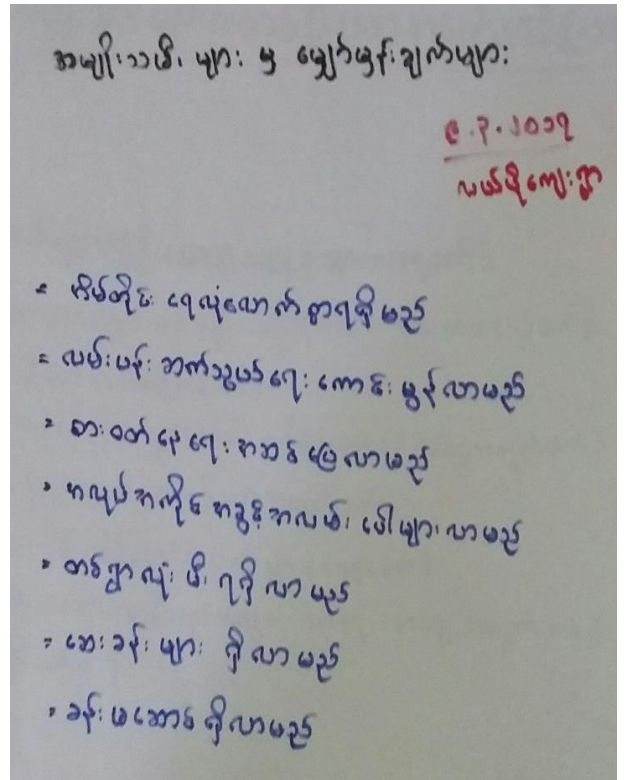 အမျိုးသမီး များ ၏ မျှော်မှန်းချက်များ
၉.၃.၂၀၁၃
လယ်ပိုကျေးရွာ
= အိမ်တိုင်း ရေလုံလောက်စွာရရှိမည်
= လမ်းပန်းဆက်သွယ်ရေး ကောင်းမွန်လာမည်
= စားဝတ်နေရေး အဆင်ပြေလာမည်
= အလုပ်အကိုင် အခွင့်အလမ်း ပေါများလာမည်
= တစ်ရွာလုံး မီး ရရှိလာမည်
= ဆေးခန်းများ ရှိလာမည်
= ခန်းမဆောင်ရှိလာမည်